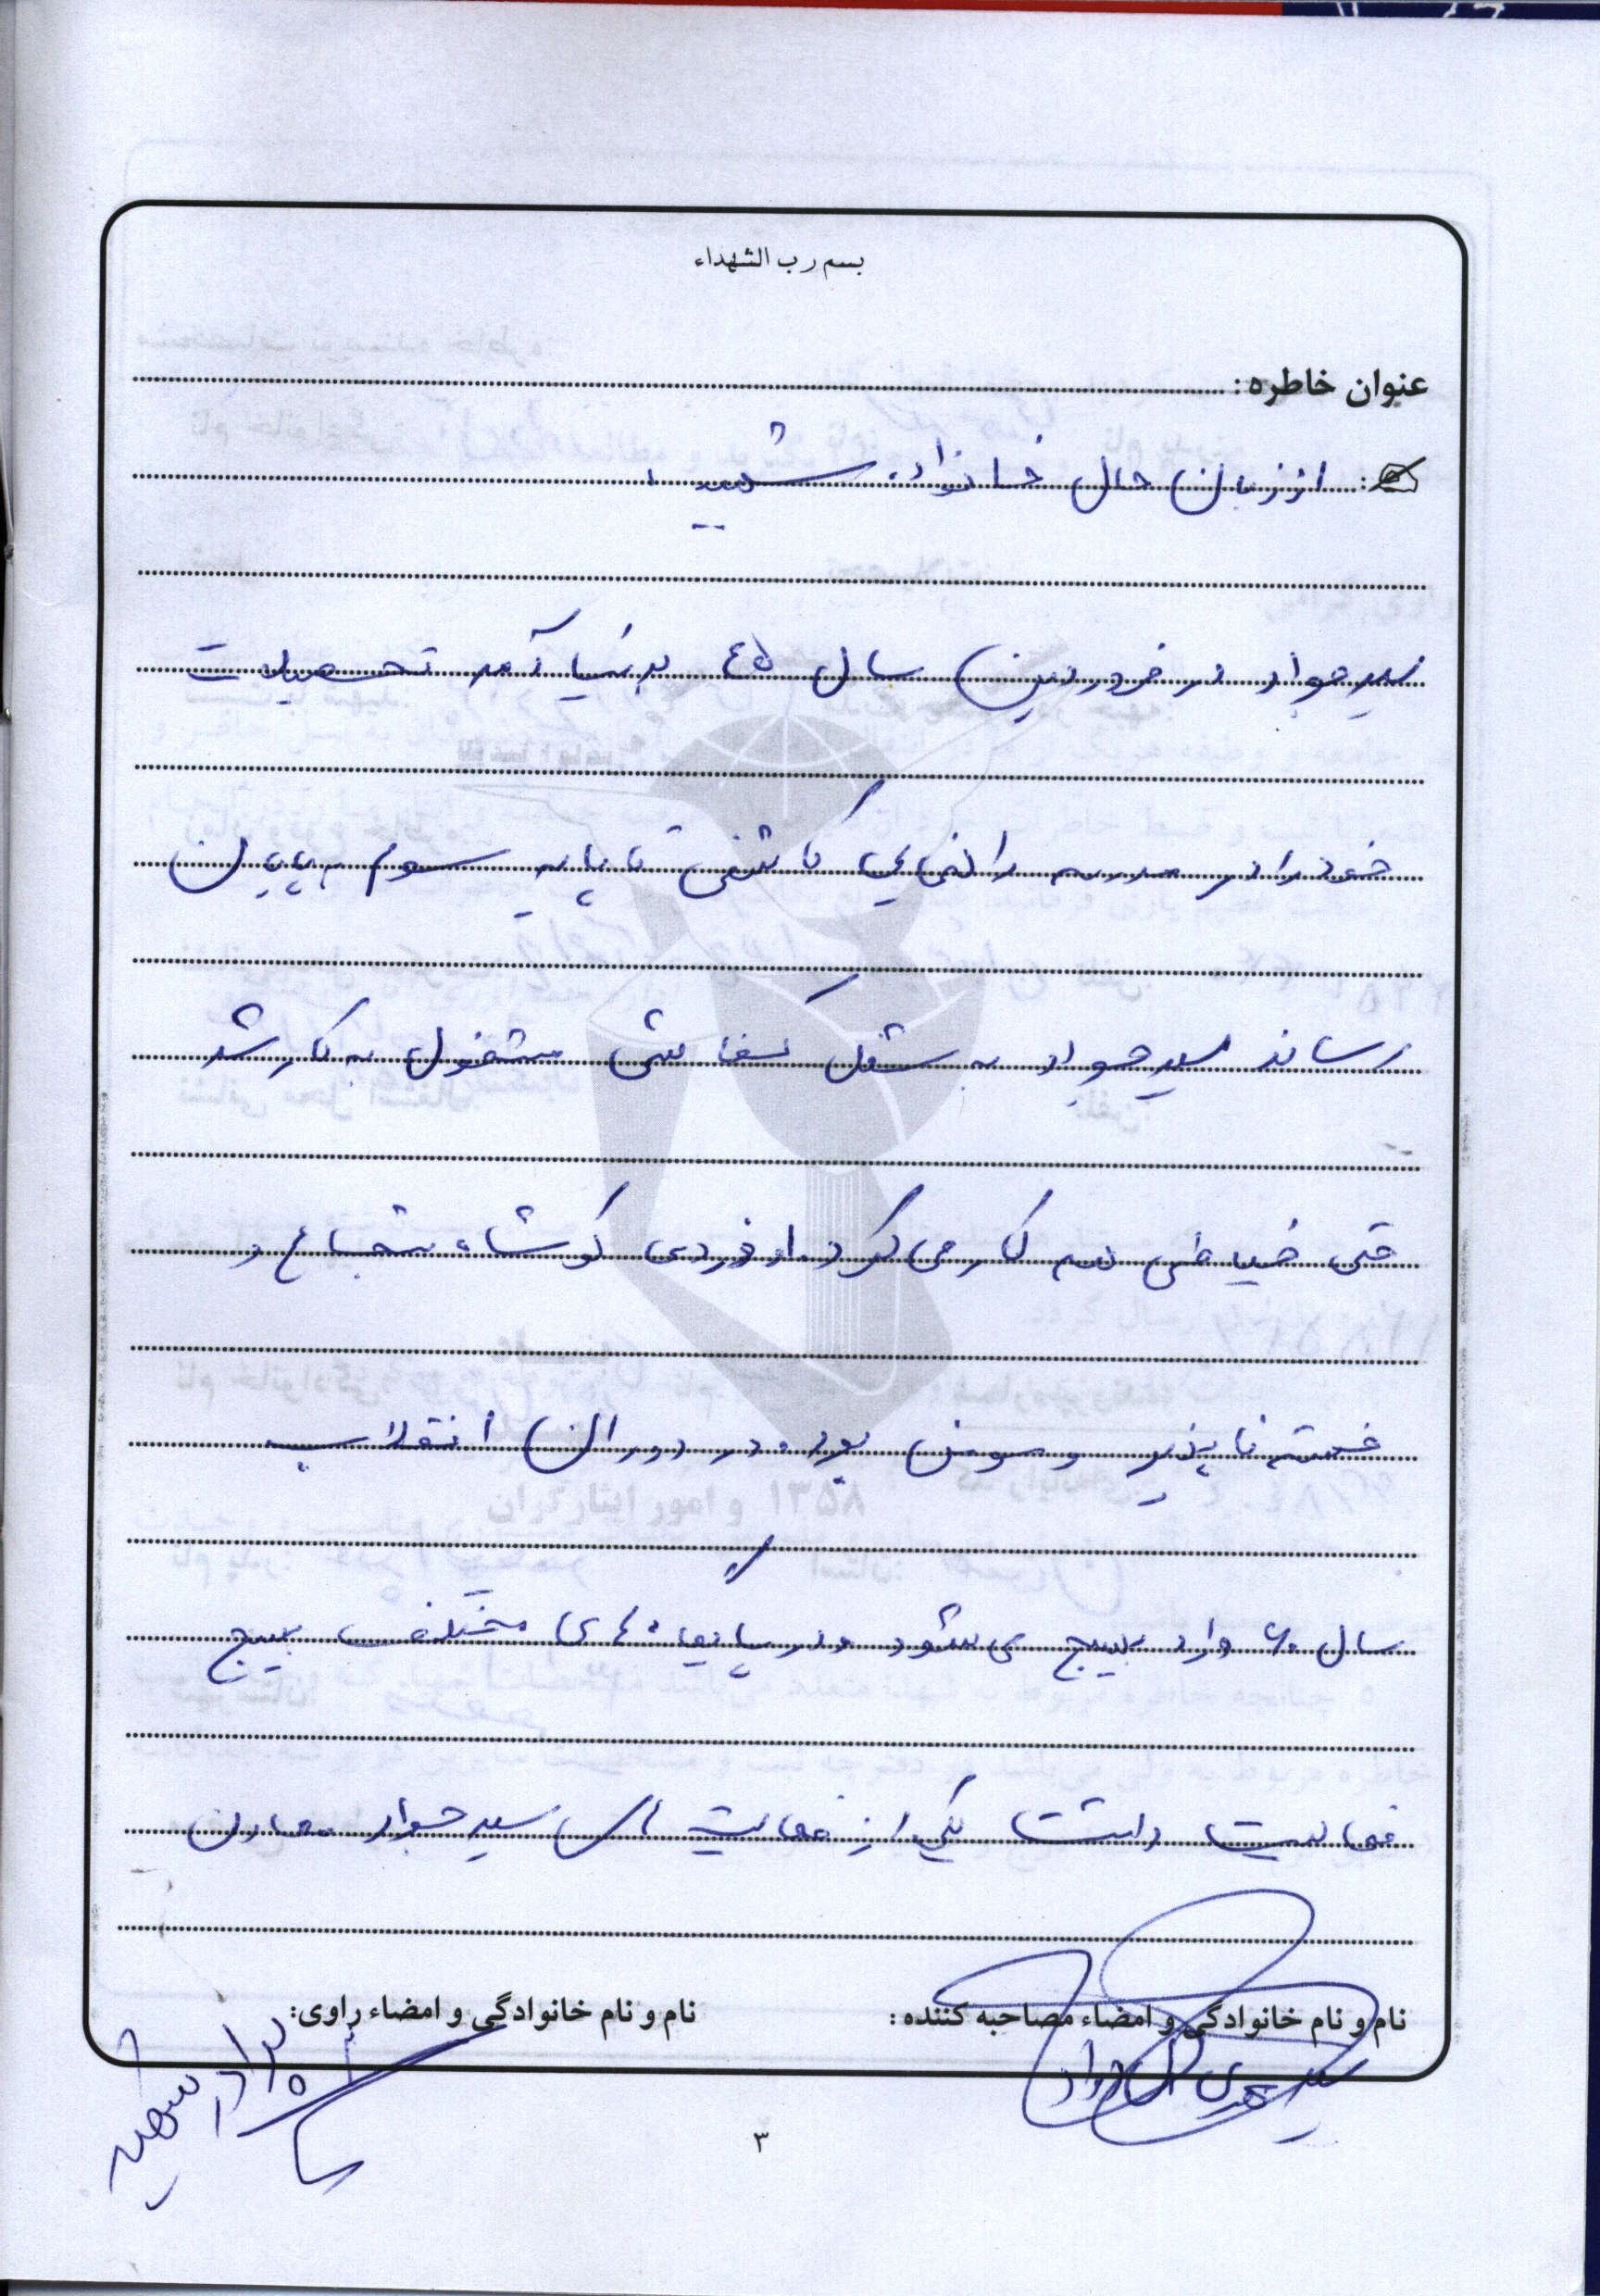 بسم رب الشهداء
عنوان خاطره:
از زبان حال خانواده شهید
سید جواد در فروردین سال ۴۵ بدنیا آمد تحصیلات
خود را در مدرسه راهنمایی کاشفی تا پایه سوم بپایان
رساند سید جواد به شغل کفاشی مشغول به کار شد
حتی خیاطی هم کار می کرد. او فردی کوشا، شجاع و
خسته ناپذیر و مومن بود. در دوران انقلاب
سال ۶۰ وارد بسیج می شود و در پایگاه های مختلف بسیج
فعالیت داشت یکی از فعالیت های سید جواد معاون
نام و نام خانوادگی و امضاء مصاحبه کننده:
نام و نام خانوادگی و امضاء راوی:
سید مهدی
برادر شهید
۳